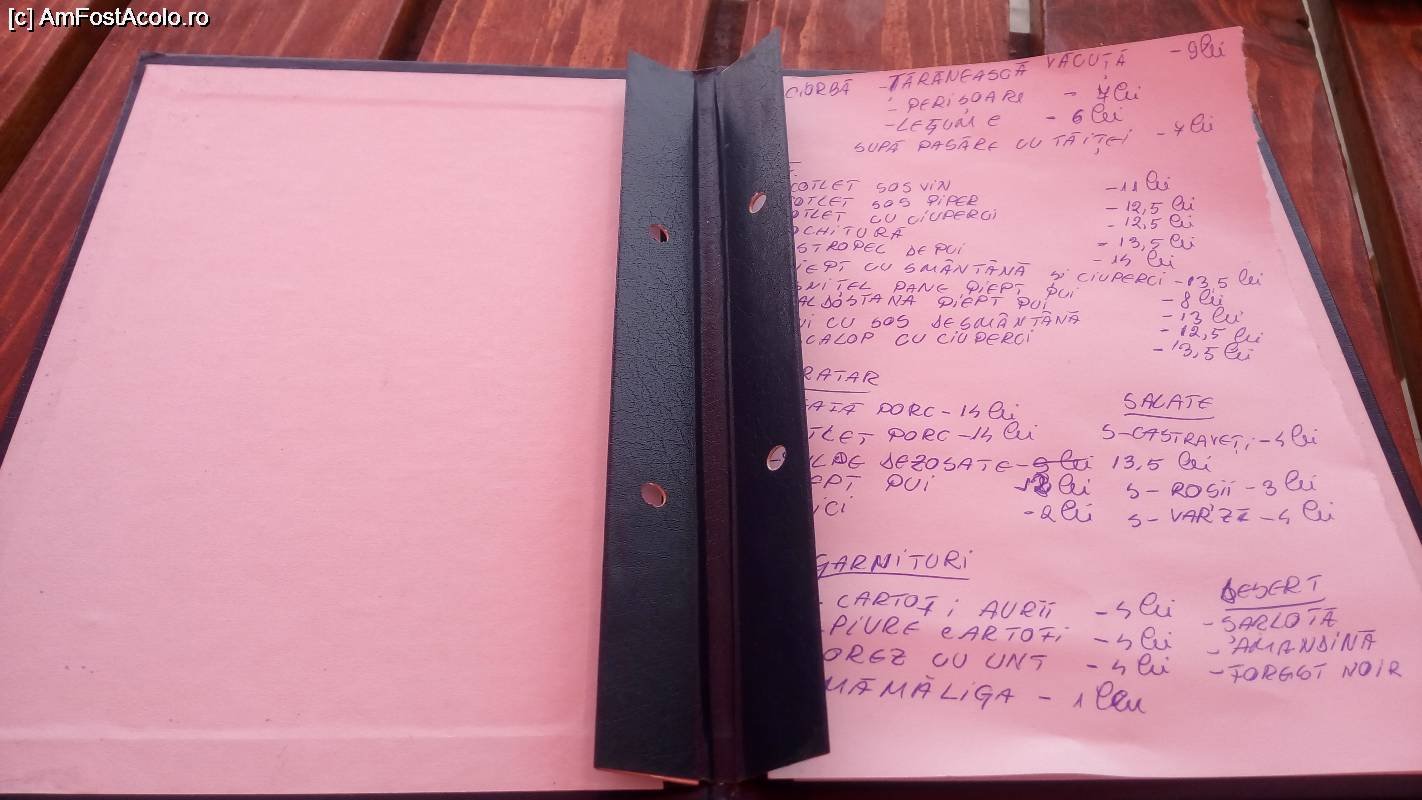 [c] AmFostAcolo.ro
CIORBĂ - ȚĂRĂNEASCĂ VĂCUȚĂ - 9 lei
- PERIȘOARE - 7 lei
- LEGUME - 6 lei
SUPĂ PASĂRE CU TĂIȚEI - 7 lei
COTLET SOS VIN - 11 lei
COTLET SOS PIPER - 12,5 lei
OTLET CU CIUPERCI - 12,5 lei
OCHITURĂ - 13,5 lei
STROPEL DE PUI - 14 lei
IEPT CU SMÂNTÂNĂ ȘI CIUPERCI - 13,5 lei
ȘNIȚEL PANE PIEPT PUI - 8 lei
ALDOSTANA PIEPT PUI - 13 lei
UI CU SOS DE SMÂNTÂNĂ - 12,5 lei
CALOP CU CIUPERCI - 13,5 lei
RATAR
AFĂ PORC - 14 lei
TLET PORC - 14 lei
ULPE DEZOSATE - 9 lei 13,5 lei
EPT PUI 12 lei
ICI - 2 lei
SALATE
S - CASTRAVEȚI - 4 lei
S - ROȘII - 3 lei
S - VARZĂ - 4 lei
GARNITURI
- CARTOFI AURII - 4 lei
- PIURE CARTOFI - 4 lei
OREZ CU UNT - 4 lei
MĂMĂLIGA - 1 leu
DESERT
- ȘARLOTĂ
- AMANDINĂ
- FORGOT NOIR